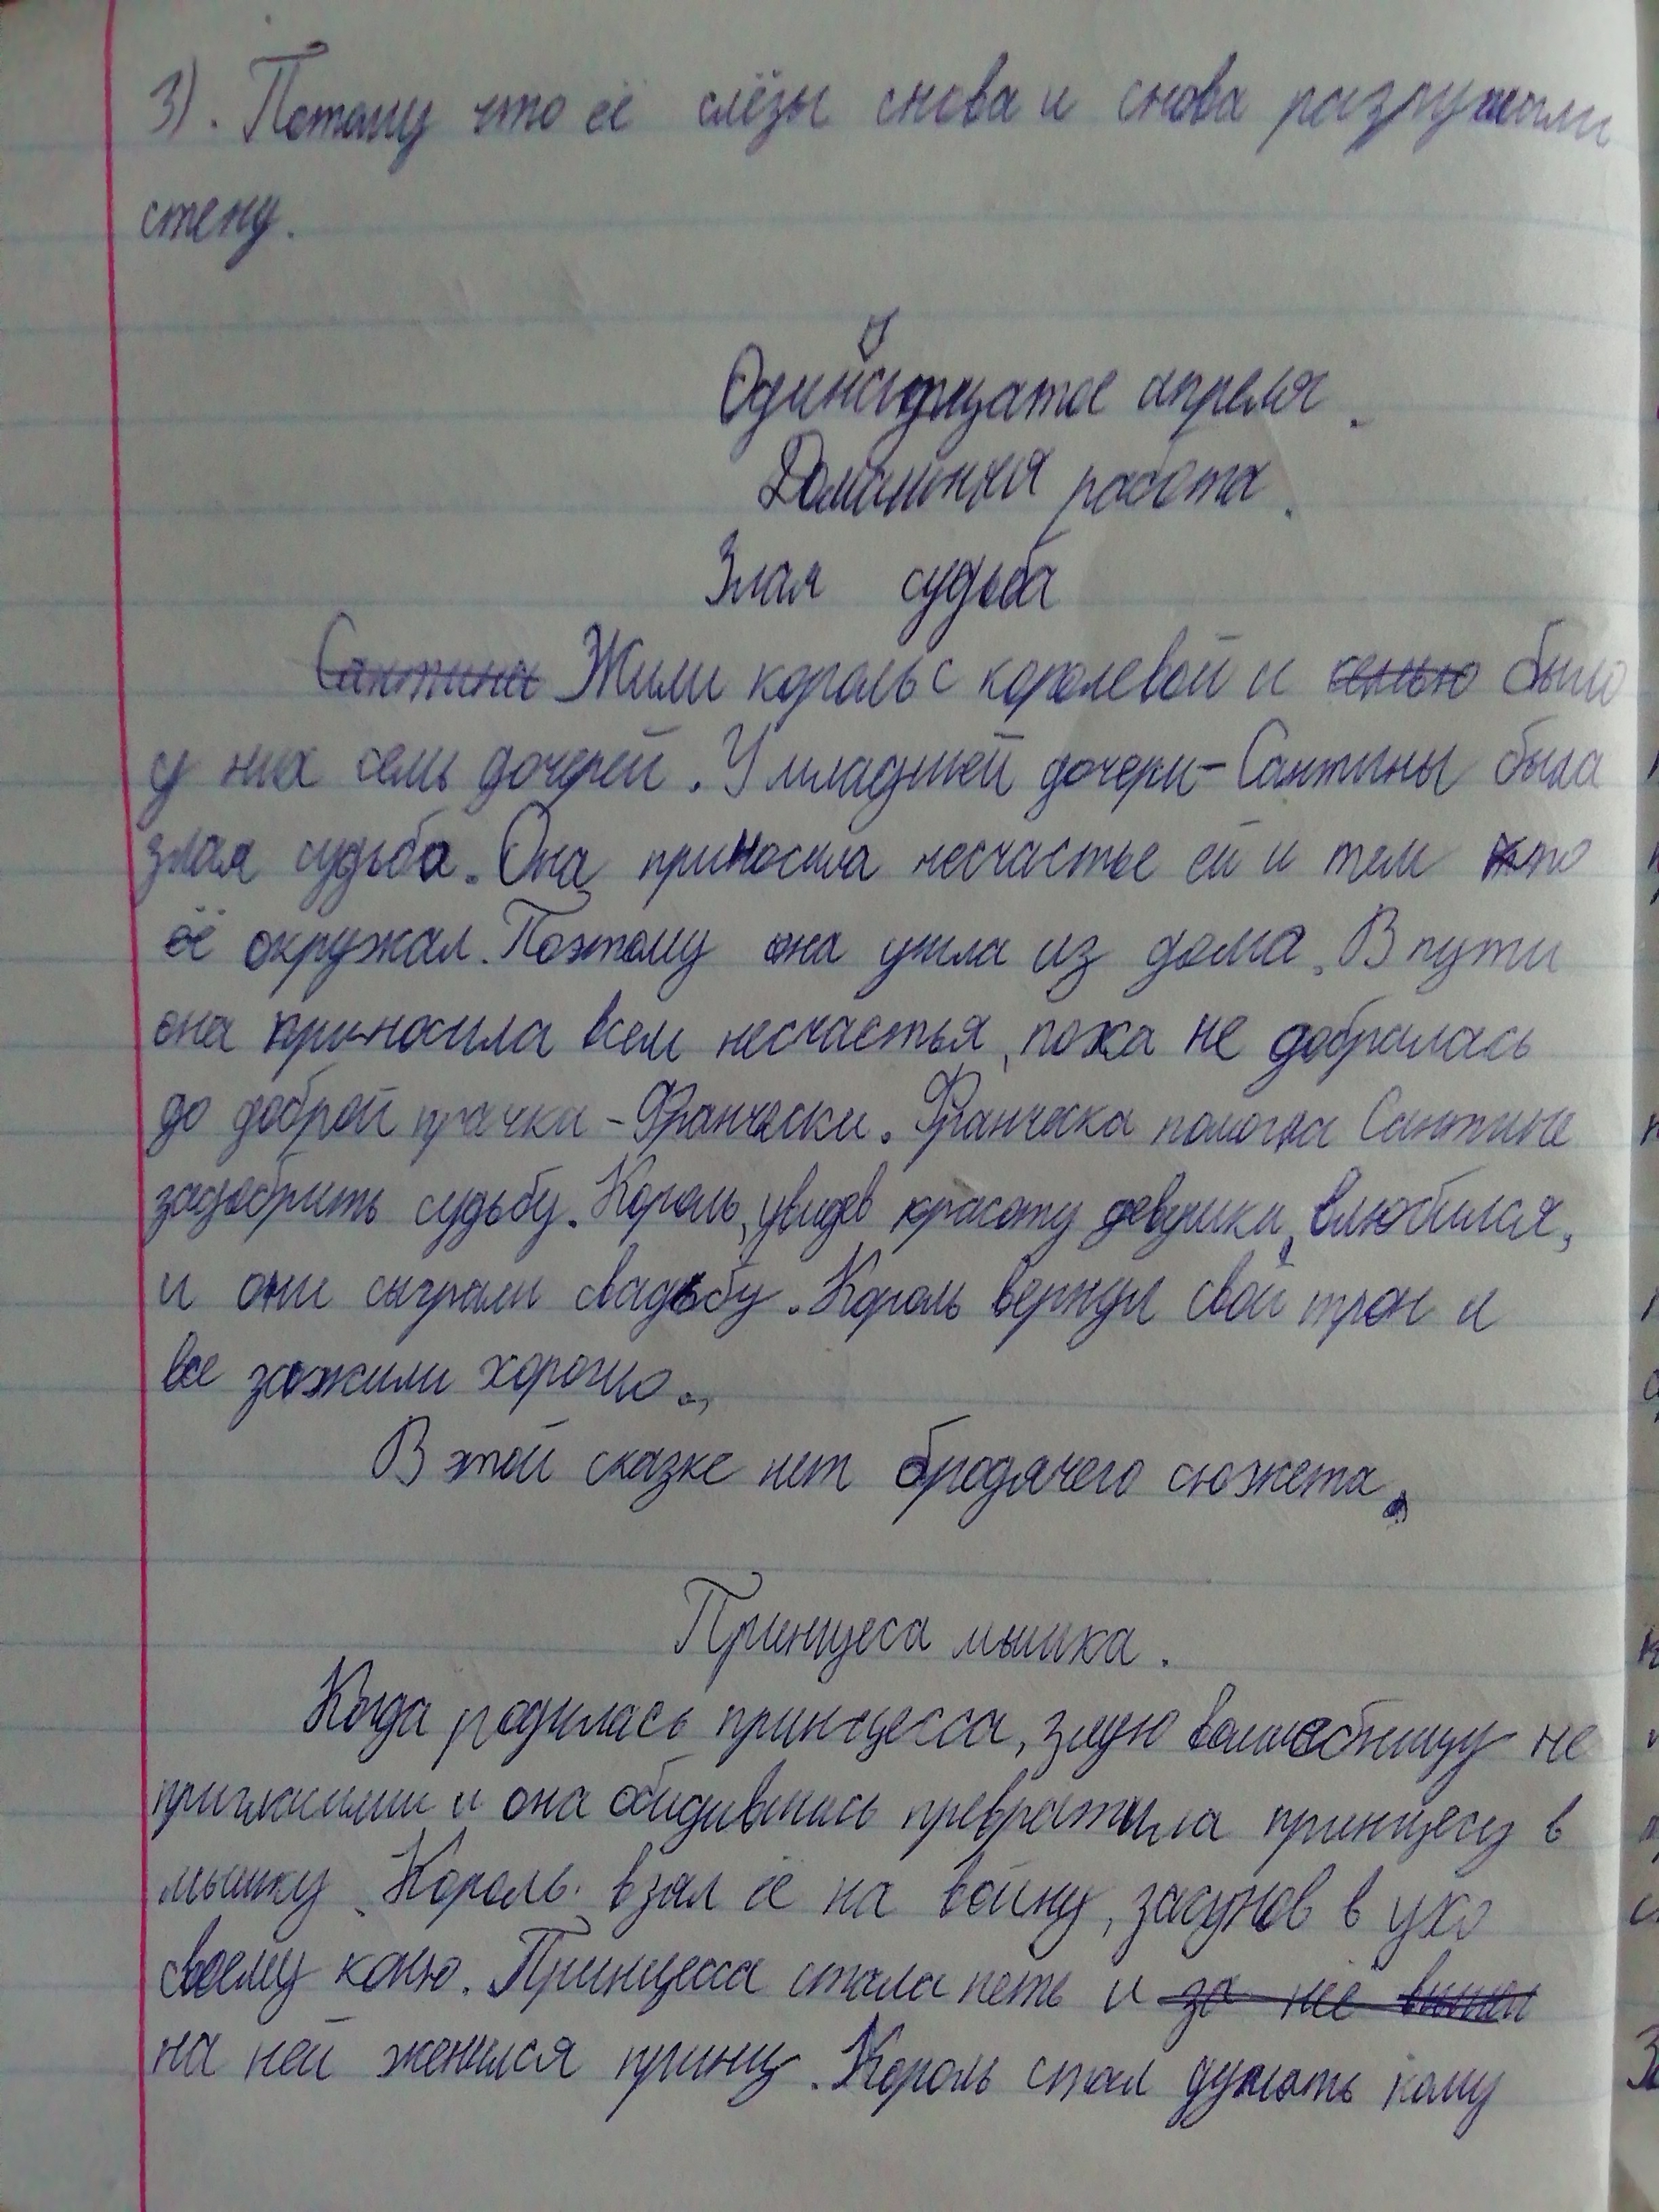 3). Потому что её слёзы снова и снова разрушали
стену.
Одиннадцатое апреля.
Домашняя работа.
Злая судьба
Сантина Жили король с королевой и семью было
у них семь дочерей. У младшей дочери - Сантины была
злая судьба. Она приносила несчастье ей и тем кто
её окружал. Поэтому она ушла из дома. В пути
она приносила всем несчастья, пока не добралась
до доброй прачки - Франчески. Франческа помогла Сантине
задобрить судьбу. Король, увидев красоту девушки, влюбился,
и они сыграли свадьбу. Король вернул свой трон и
все зажили хорошо.
В этой сказке нет бродячего сюжета.
Принцеса мышка.
Когда родилась принцесса, злую волшебницу не
пригласили и она обидившись превратила принцесу в
мышку. Король взял её на войну, засунов в ухо
своему коню. Принцесса стала петь и за неё вышел
на ней женился принц. Король стал думать кому